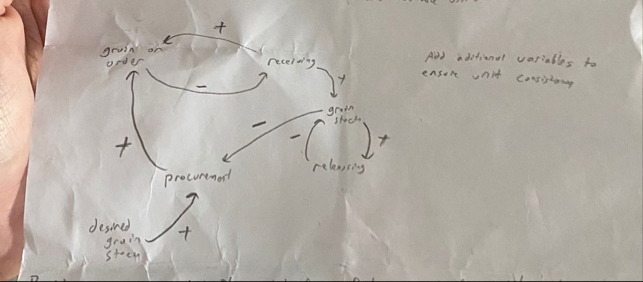 +
grain on
order
receiving
+
-
grain
stock
-
-
+
+
releasing
procurement
desired
grain
stock
+
Add aditional variables to
ensure unit consistency